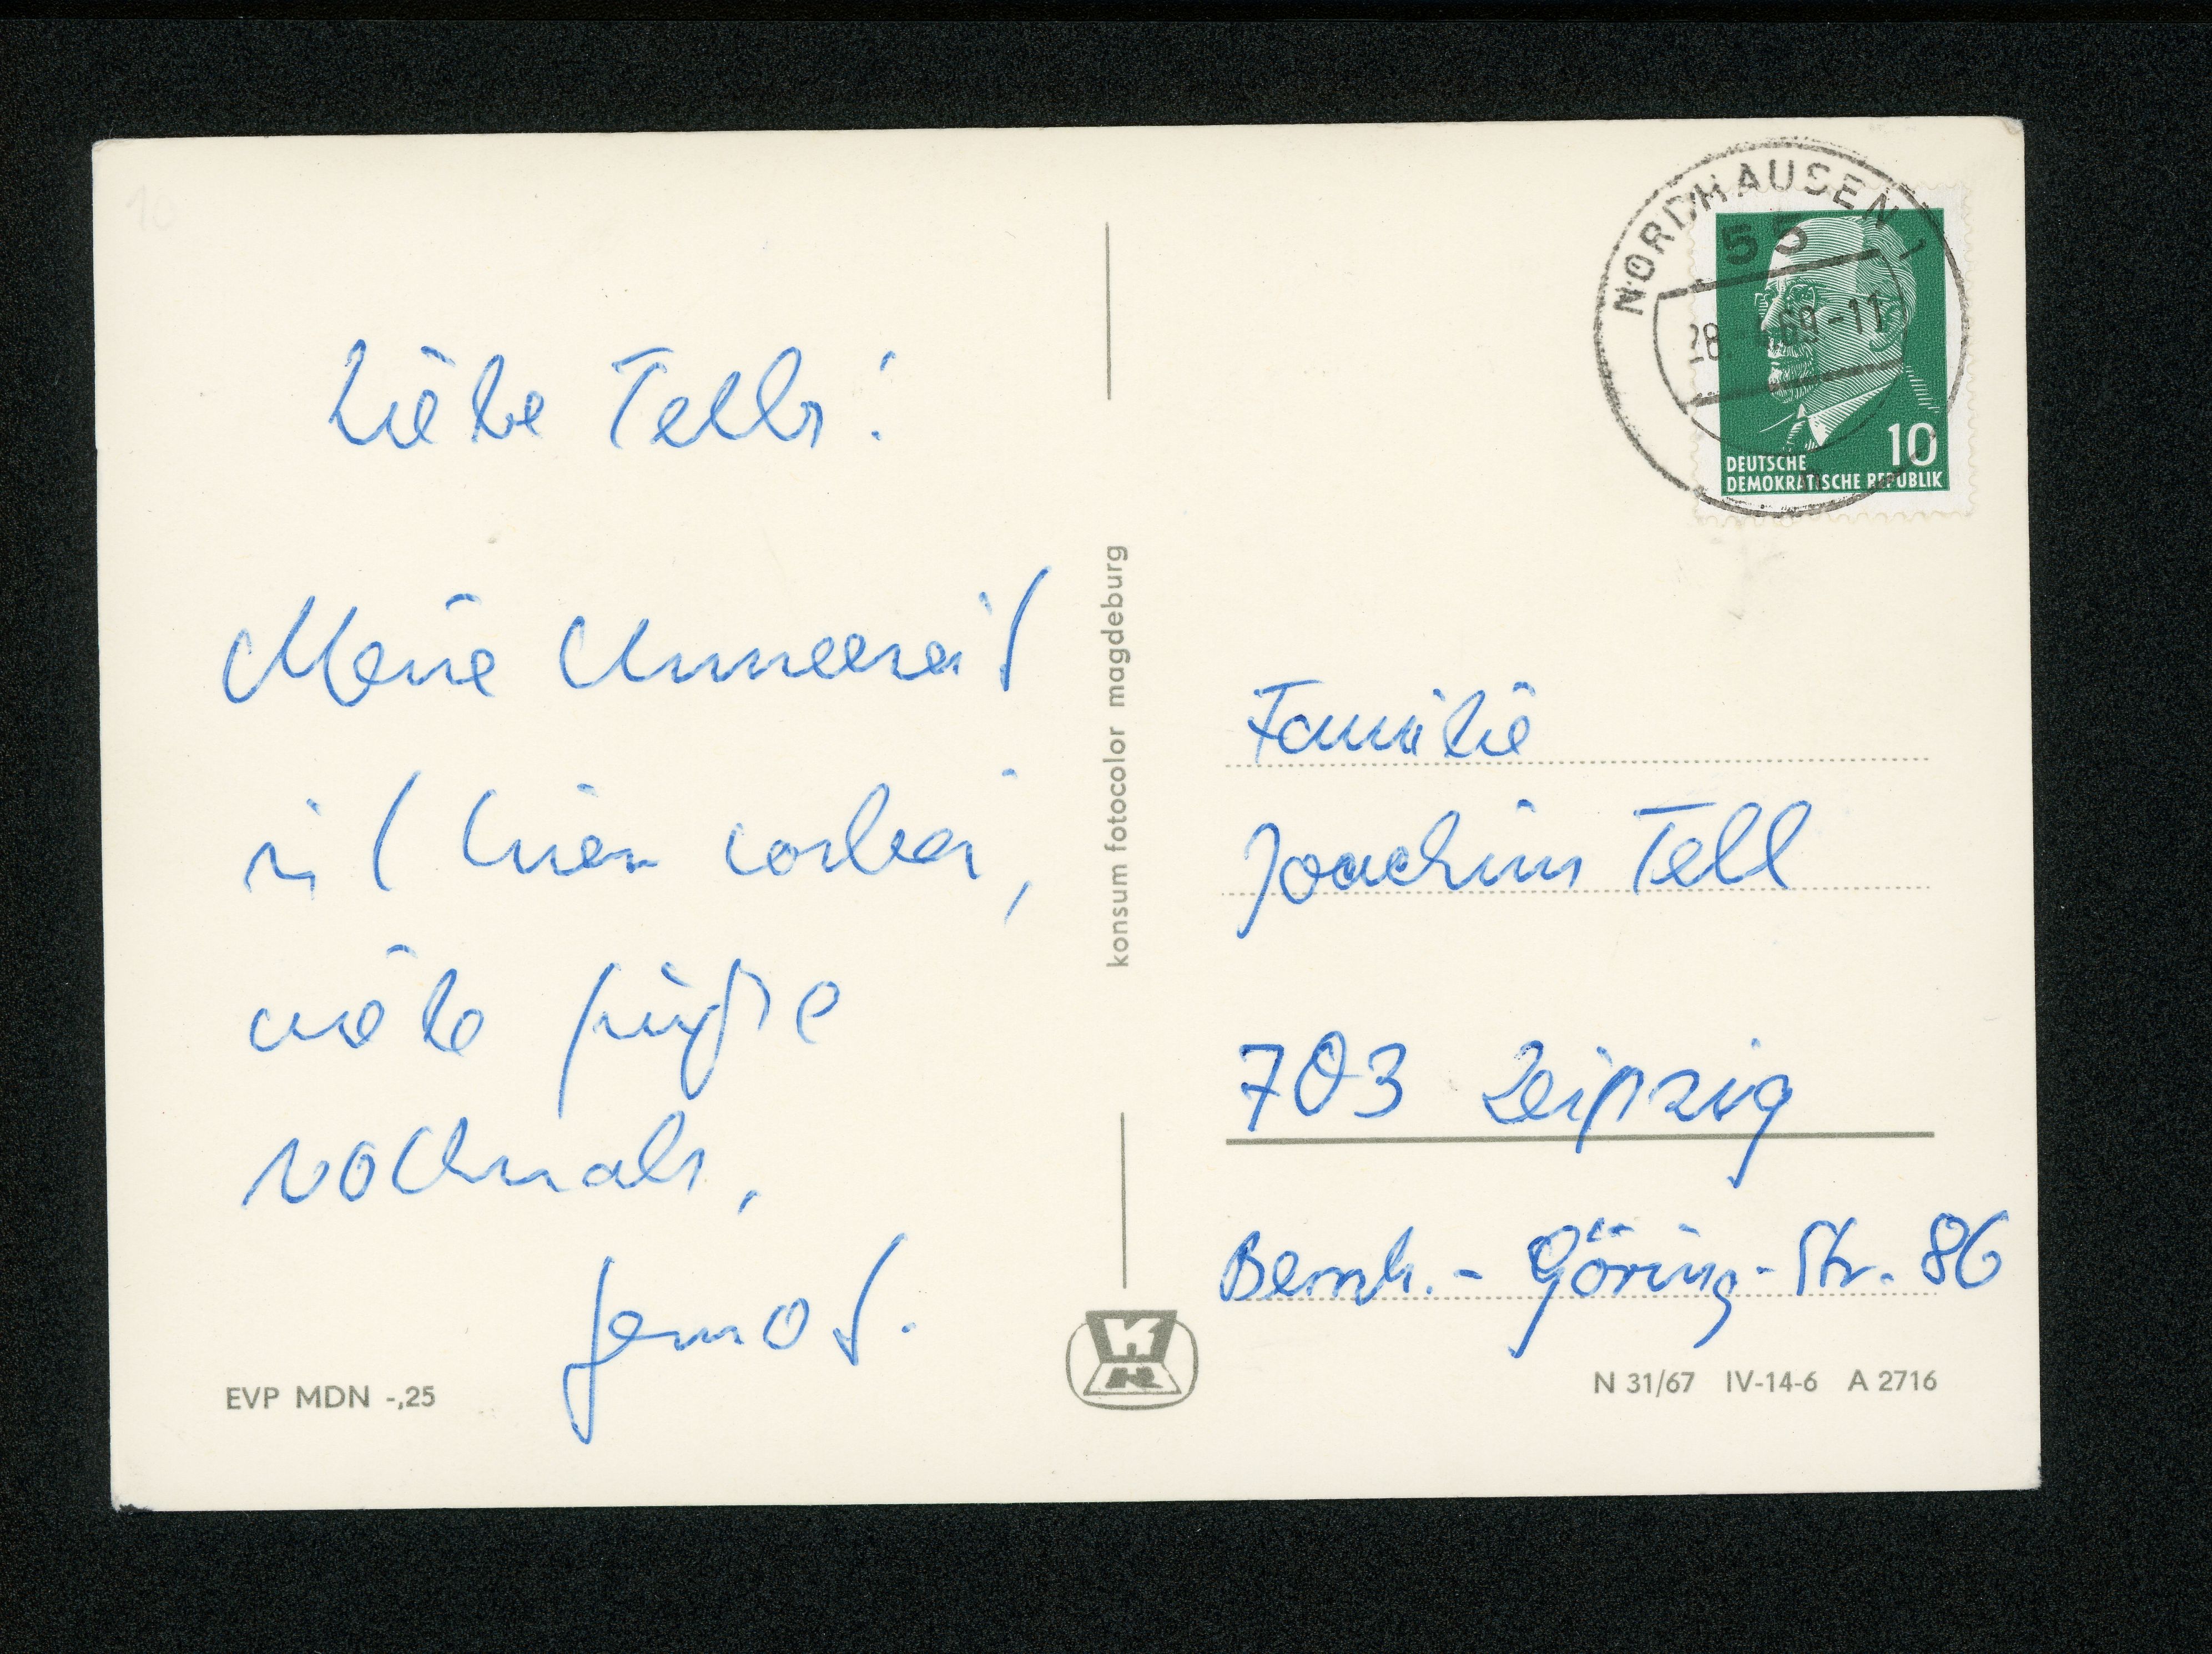 Liebe Tells!
Meine Armeezeit
ist hier vorbei,
viele Grüße
nochmals,
Gernot.
konsum fotocolor magdeburg
EVP MDN -,25
NORDHAUSEN 1
55
28. 69-11
10
DEUTSCHE
DEMOKRATISCHE REPUBLIK
Familie
Joachim Tell
703 Leipzig
Bernh.-Göring-Str. 86
N 31/67 IV-14-6 A 2716